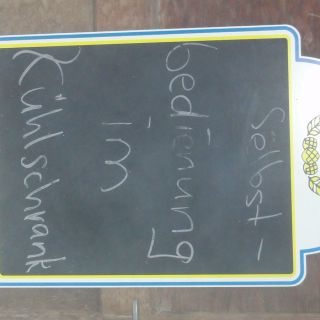 Selbst-
bedienung
im
Kühlschrank